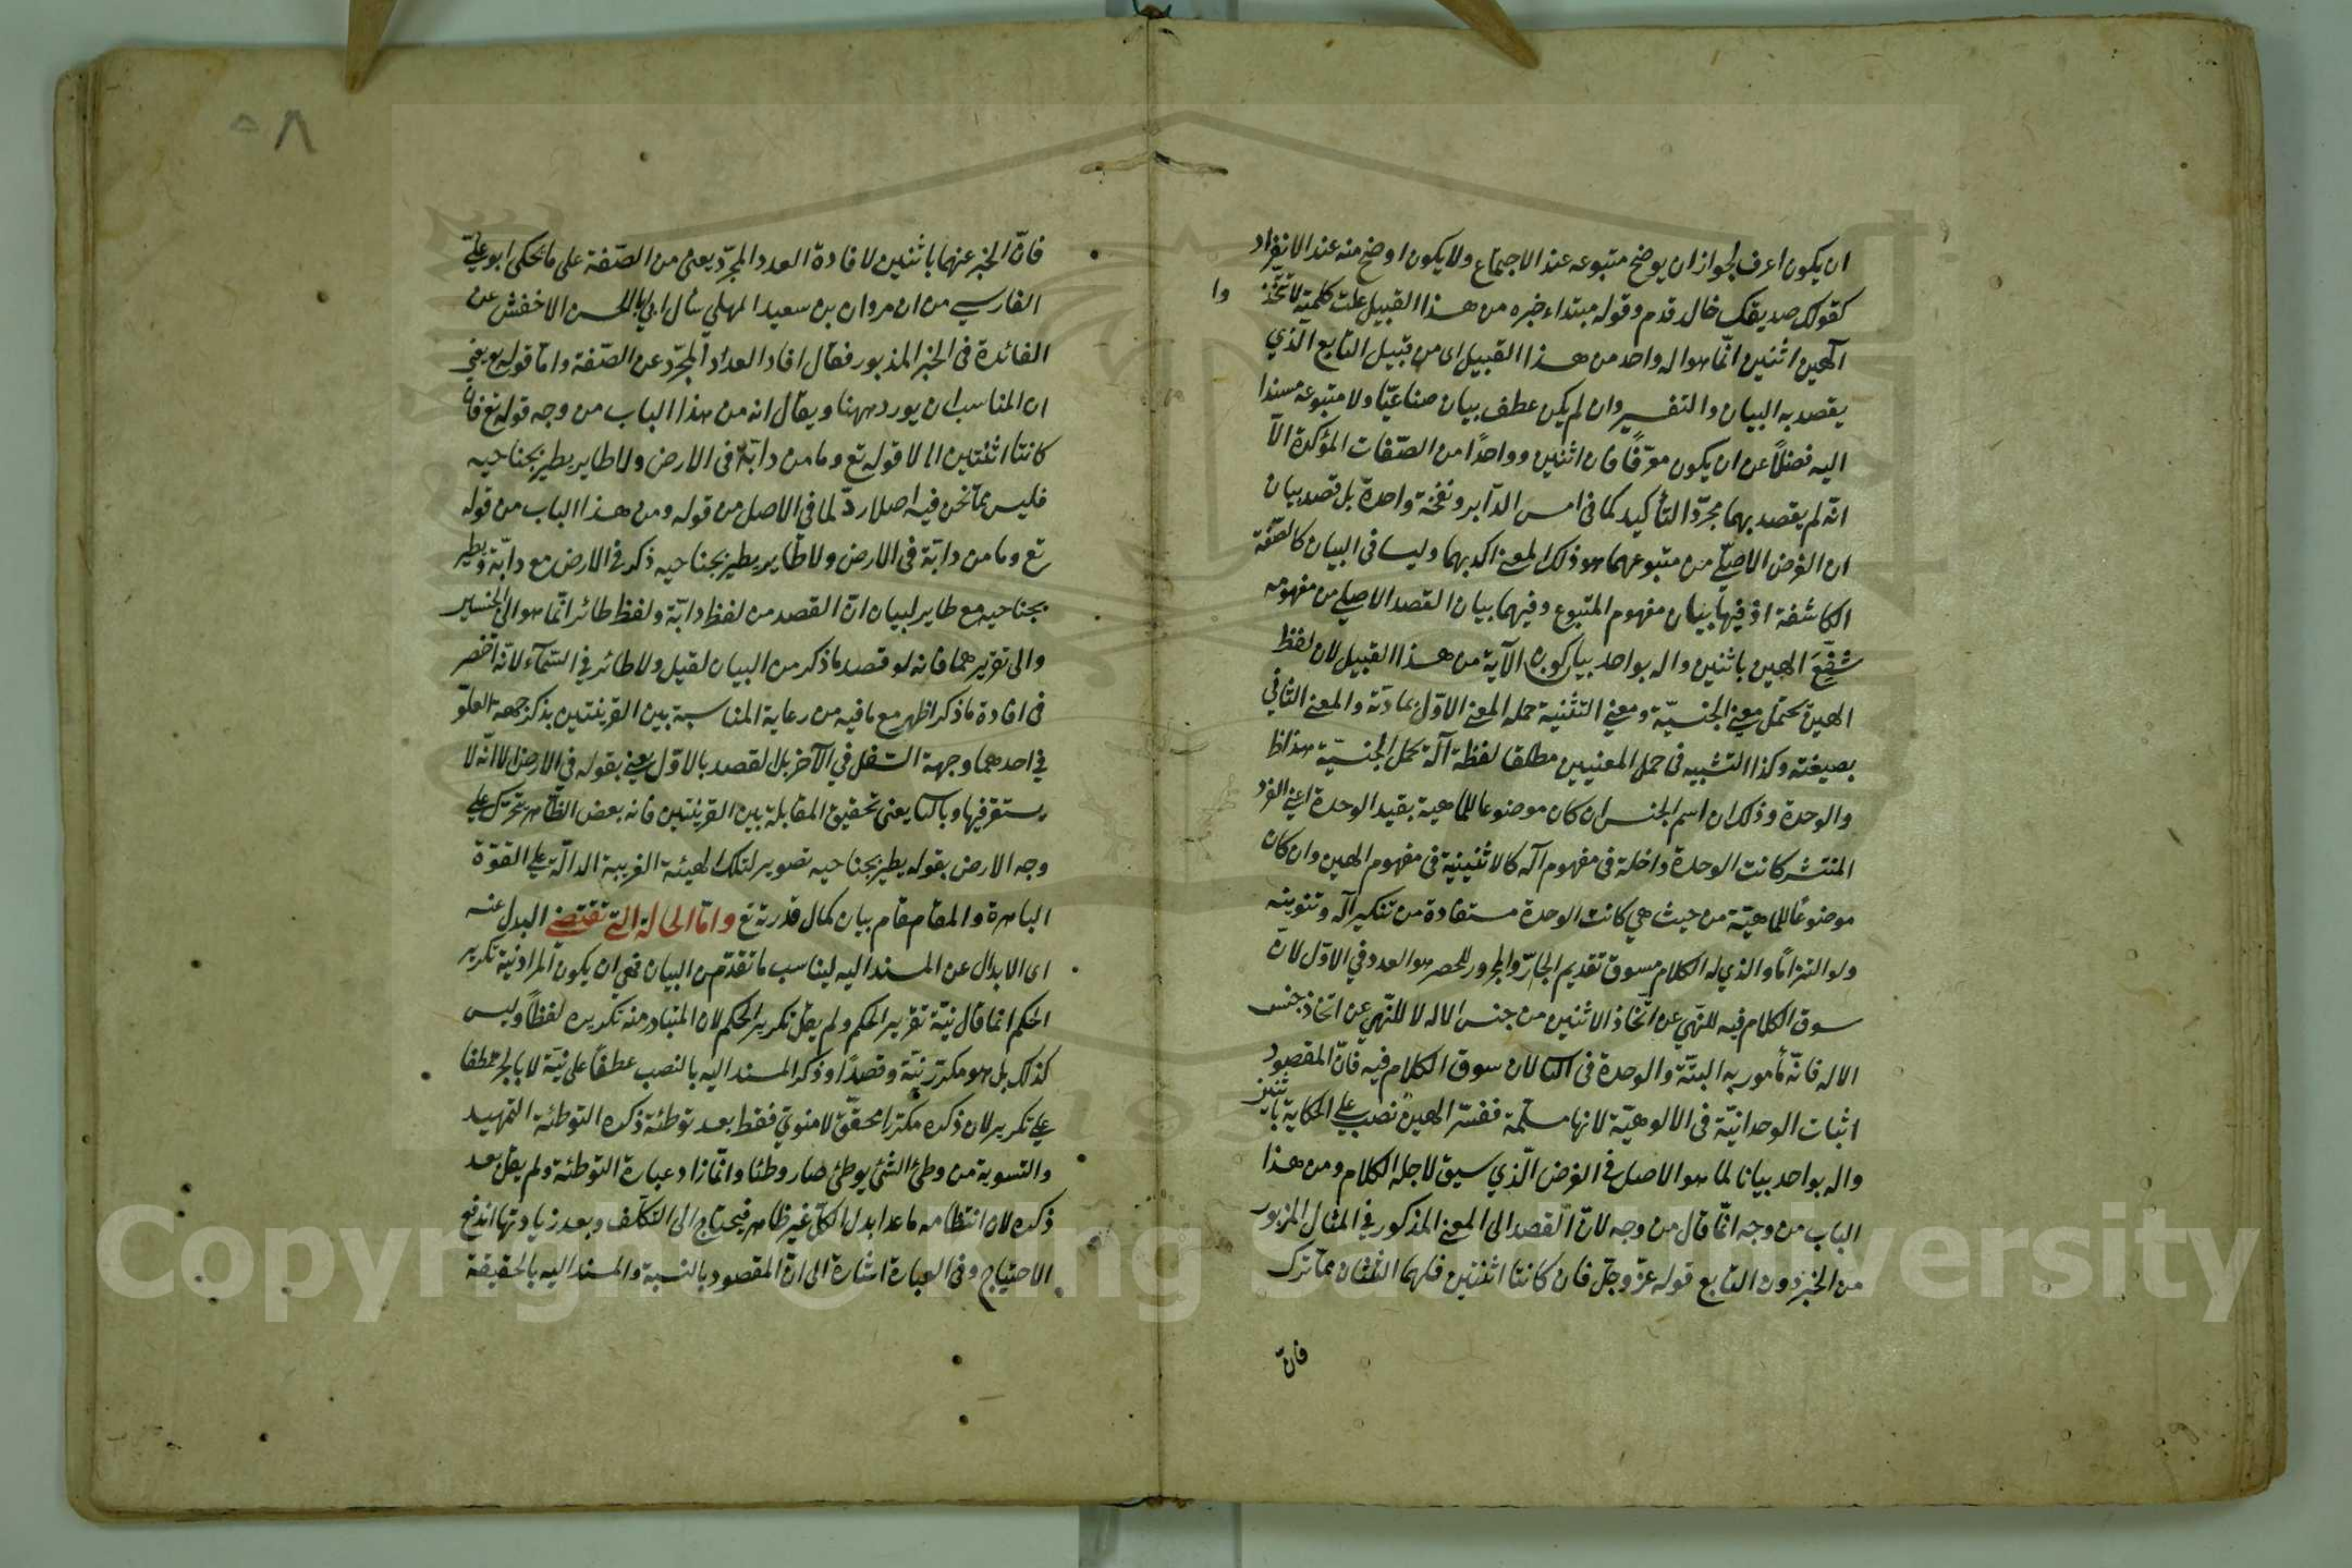 ان يكون اعرف لجواز ان يوضح متبوعه عند الاجتماع ولا يكون اوضح منه عند الانفراد
كقولك صديقك خالد قدم وقوله مبتداء خبره من هذا القبيل علت كلمته لا تتخذوا
آلهين اثنين انّما هو اله واحد من هذا القبيل اى من قبيل التابع الّذي
يقصد به البيان والتفسير وان لم يكن عطف بيان صناعيّا ولا متبوعه مسندا
اليه فضلاً عن ان يكون معرّفًا فان اثنين وواحدًا من الصّفات المؤكدة الّا
انّه لم يقصد بهما مجرّد التأكيد كما فى امس الدّابر ونفخة واحدة بل قصد بيان
ان الغرض الاصلّي من متبوعهما هو ذلك المعنى اكد بهما وليسا فى البيان كالصّفة
الكاشفة اذ فيها بيان مفهوم المتبوع وفيهما بيان القصد الاصلي من مفهومه
شفع الهين باثنين واله بواحد بيان كون الآية من هذا القبيل لان لفظ
الهين يحتمل معنى الجنسيّة ومعنى التثنية حمله المعنى الاوّل بمادّته والمعنى الثاني
بصيغته وكذا التشبيه فى حمل المعنيين مطلقا لفظة آله تحمل الجنسيّة
والوحدة وذلك ان اسم الجنس ان كان موضوعا للماهية بقيد الوحدة اعنى الفرد
المنتشر كانت الوحدة داخلة فى مفهوم آله كالاثنينية فى مفهوم الهين وان كان
موضوعًا للماهيّة من حيث هي كانت الوحدة مستفادة من تنكير آله وتنوينه
ولو التزامًا والذي له الكلام مسوق تقديم الجارّ والمجرور للحصر هو العدد في الاوّل لانّ
سوق الكلام فيه للنّهي عن اتّخاذ الاثنين من جنس الاله لا للنّهي عن اتخاذ جنس
الاله فانّه مأمور به البتّة والوحدة فى الثانى لان سوق الكلام فيه فانّ المقصود
اثبات الوحدانيّة فى الالوهيّة لانها مسلّمة ففسّر الهين نصب على الحكاية باثنين
واله بواحد بيانا لما هو الاصل في الغرض الّذي سيق لاجله الكلام ومن هذا
الباب من وجه انّما قال من وجه لانّ القصد الى المعنى المذكور في المثال المزبور
من الخبر دون التابع قوله عزّ وجلّ فان كانتا اثنتين فلهما الثلثان ممّا ترك
فانّ
٥٨
فانّ الخبر عنهما باثنين لافادة العدد المجرّد يعنى من الصّفة على ما يحكى ابو عليّ
الفارسي من ان مروان بن سعيد المهلبي سأل ابا الحسن الاخفش عن
الفائدة فى الخبر المذبور فقال افاد العدد المجرّد عن الصّفة وامّا قوله
ان المناسب ان يورد ههنا ويقال انه من هذا الباب من وجه قوله تع فان
كانتا اثنتين الا لا قوله تع وما من دابّة فى الارض ولا طاير يطير بجناحيه
فليس ممّا نحن فيه اصلا ردّ لما في الاصل من قوله ومن هذا الباب من قوله
تع وما من دابّة فى الارض ولا طاير يطير بجناحيه ذكر فى الارض مع دابّة ويطير
بجناحيه مع طاير لبيان انّ القصد من لفظ دابّة ولفظ طائر انّما هو الى الجنسين
والى تقريرهما فانه لو قصد ما ذكر من البيان لقيل ولا طائر في السّمآء لانّه اخصر
فى افادة ما ذكر اظهر مع ما فيه من رعاية المناسبة بين القرينتين بذكر جهة العلوّ
في احدهما وجهة السّفل في الآخر بل القصد بالاوّل يعنى بقوله في الارض لا انّه لا
يستقر فيها وبالثانى يعنى تحقيق المقابلة بين القرينتين فانه بعض الطّائر يتحرّك على
وجه الارض بقوله يطير بجناحيه تصوير لتلك الهيئة الغريبة الدالّة على القوّة
الباهرة والمقام مقام بيان كمال قدرته تع وامّا الحالة الّتي تقتضي البدل عنه
اى الابدال عن المسند اليه ليناسب ما تقدّم من البيان فهي ان يكون المراد نية تكرير
الحكم انما قال نيّة تقرير الحكم ولم يقل تكرير الحكم لان المتبادر منه تكريره لفظًا وليس
كذلك بل هو مكرّر نيّة وقصدًا وذكر المسند اليه بالنصب عطفًا على نيّة لا بالجرّ عطفا
على تكرير لان ذكره مكرّرا محقّق لا منويّ فقط بعد توطئة ذكره التوطئة التمهيد
والتسوية من وطئ الشّئ يوطئ صار وطئا وانّما زاد عبارة التوطئة ولم يقل بعد
ذكره لان انتظامه ما عدا بدل الكلّ غير ظاهر فيحتاج الى التكلّف وبعد زيادتها اندفع
الاحتياج وفى العبارة اشارة الى انّ المقصود بالنسبة والمسند اليه بالحقيقة